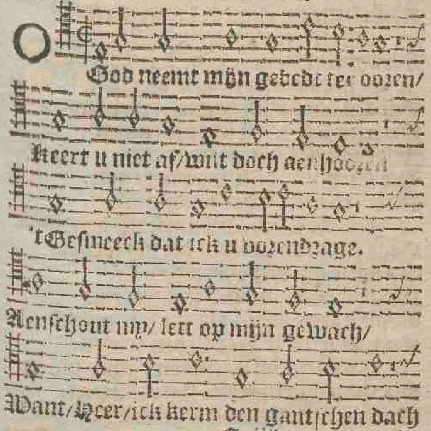 O God neemt mijn gebedt ter ooren/
Keert u niet af/ wilt doch aenhooren
't Gesmeeck dat ick u voorendrage.
Aenschout my/ lett op mijn gewach/
Want/ Heer/ ick kerm den gantschen dach